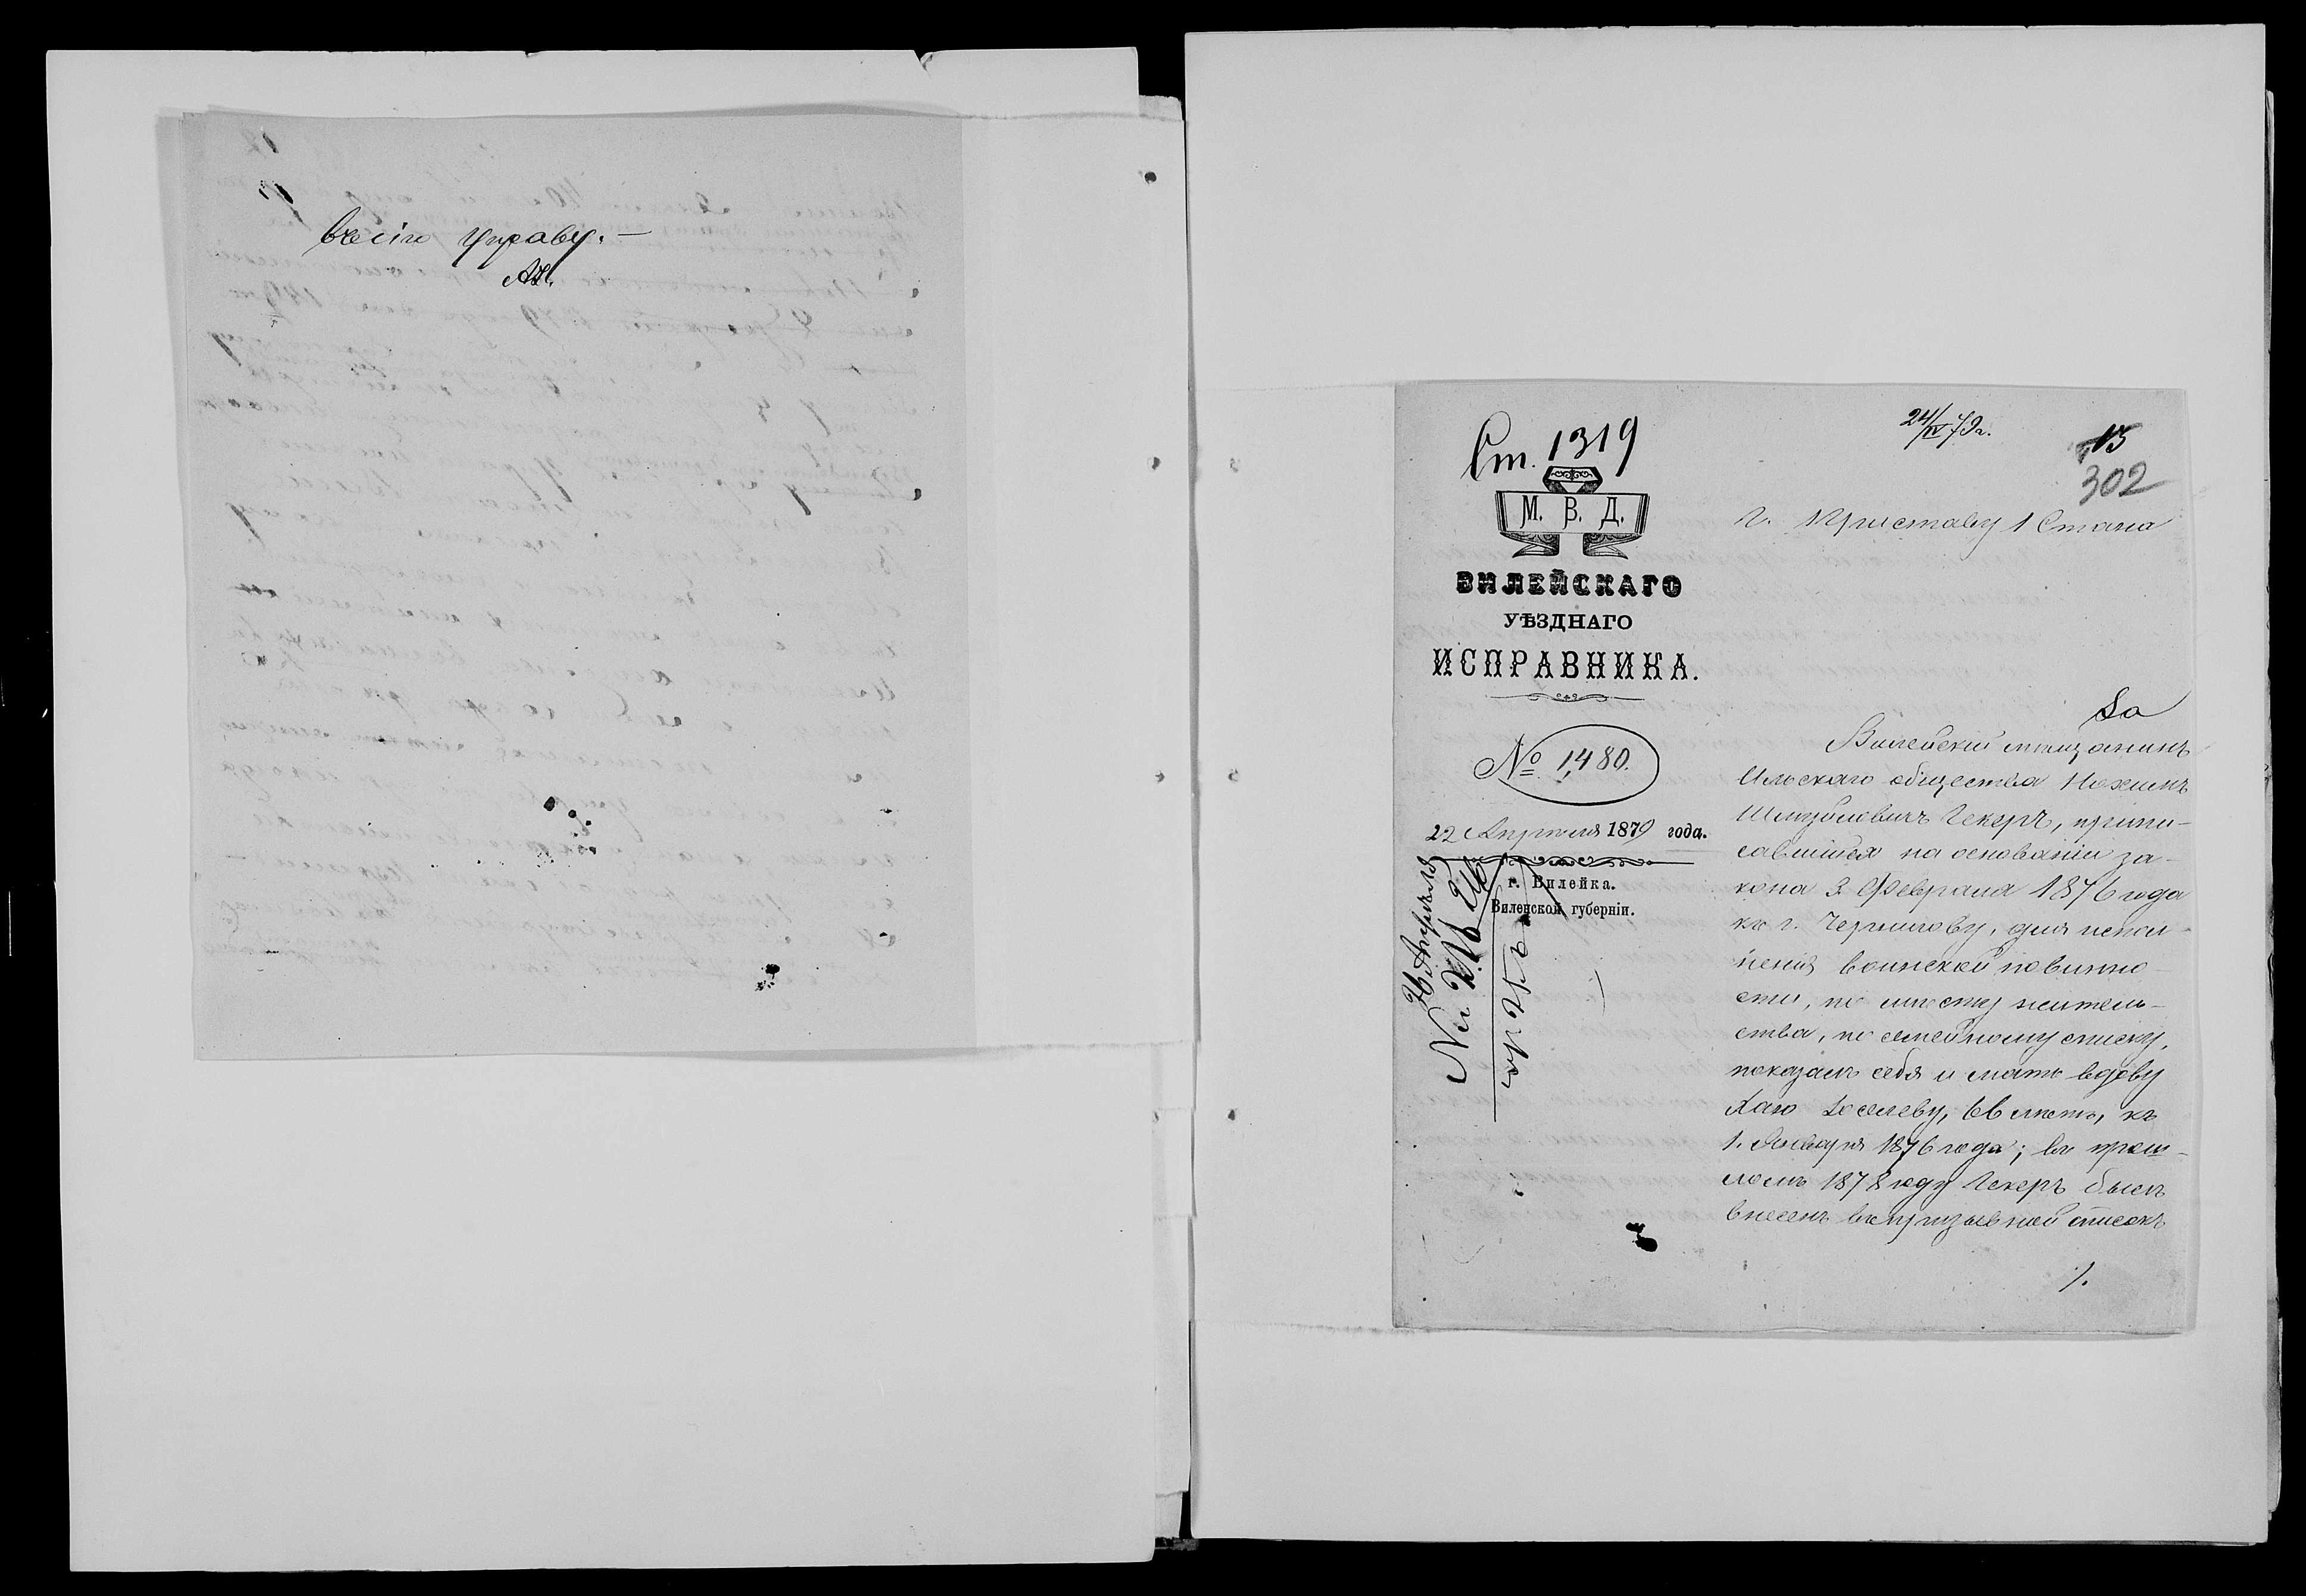 всію управу.—
Ст. 1319
24/IV 79 г.
15
302
М. В. Д.
ВИЛЕЙСКАГО
УѢЗДНАГО
ИСПРАВНИКА.
№ 1480.
22 Апрѣля 1879 года.
г. Вилейка.
Виленской губерніи.
Г. Приставу 1 Стана
Вилейскій мѣщанинъ
Илоскаго общества
Шмуйловичъ Гекеръ, припи-
савшійся на основаніи за-
кона 3 Февраля 1876 года
къ г. Чернигову, для испол-
ненія воинской повинно
сти, по мѣсту житель-
ства, по семейному списку,
показалъ себя и мать вдову
Хаю 66 лѣтъ, къ
1. Января 1876 года; въ прош-
ломъ 1878 году Гекеръ былъ
внесенъ въ призывной списокъ
/.
26 Апрѣля